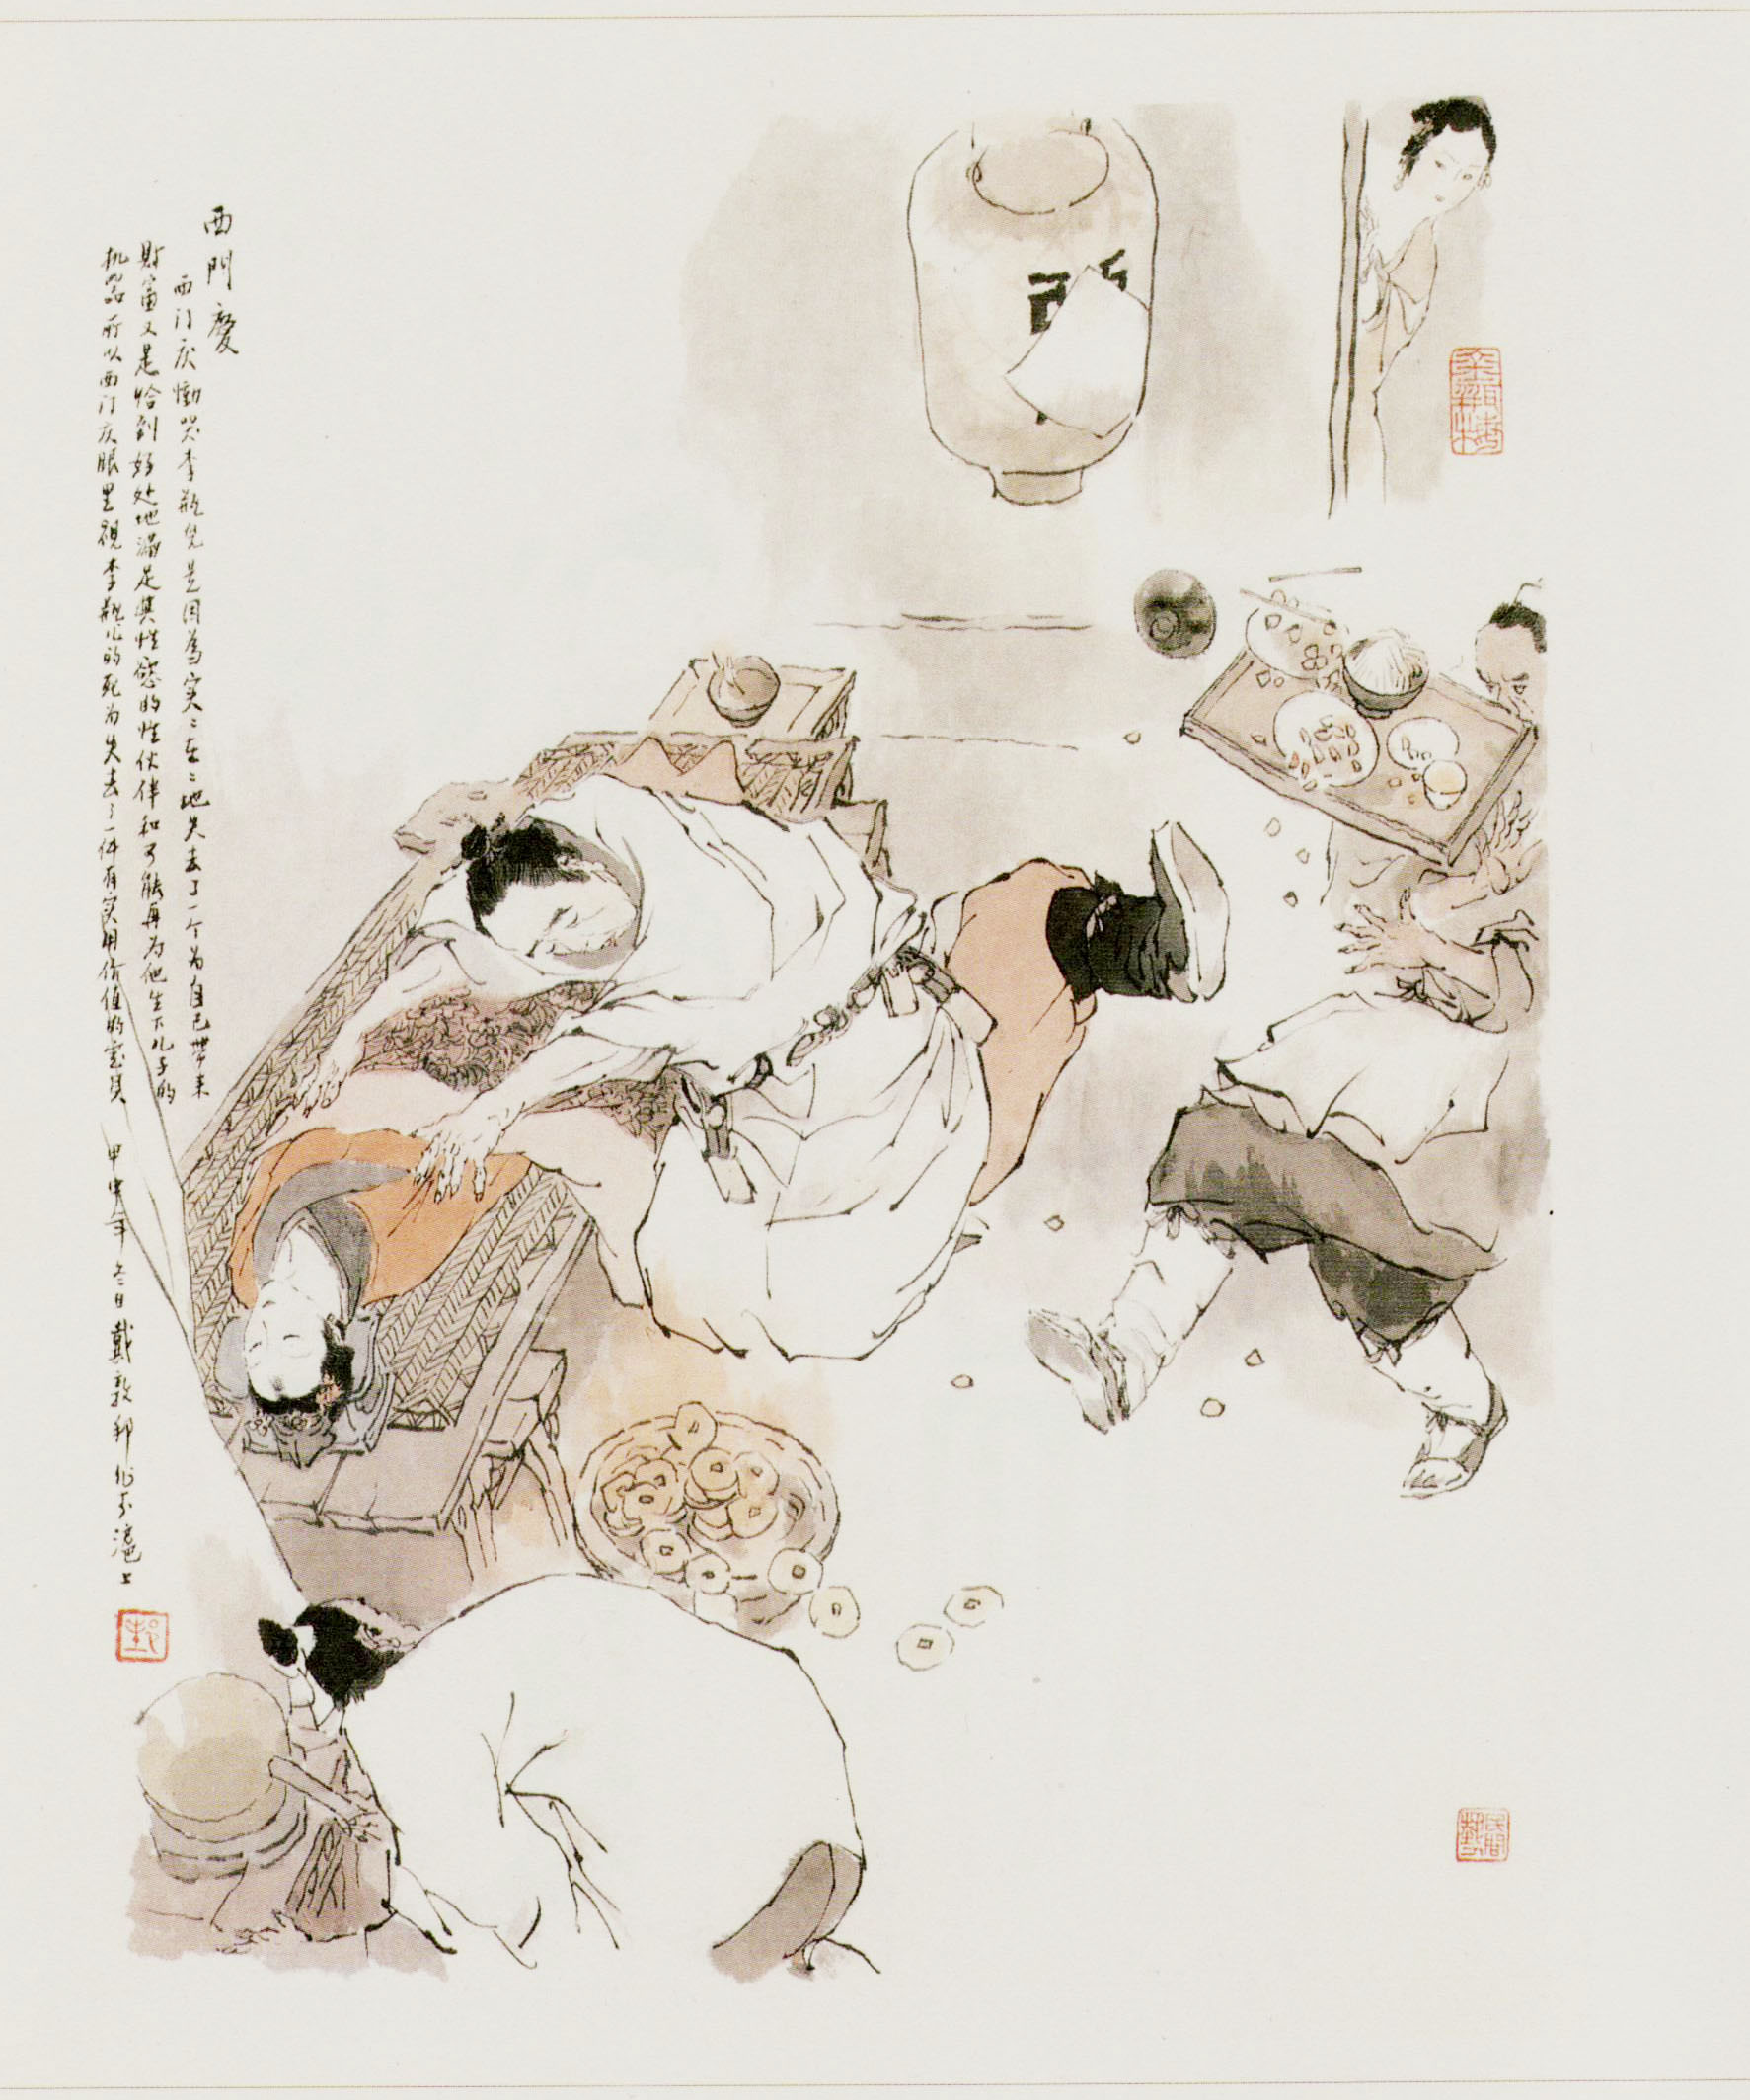 西門慶
西门庆慟哭李瓶兒是因為实々在々地失去了一个为自己带来
財富又是恰到好处地滿足其性慾的性伙伴和可能再为他生下儿子的
机器所以西门庆眼里视李瓶儿的死为失去了一件有实用价值的宝貝
甲申年冬日戴敦邦作于滬上
邦
金瓶梅
民間藝